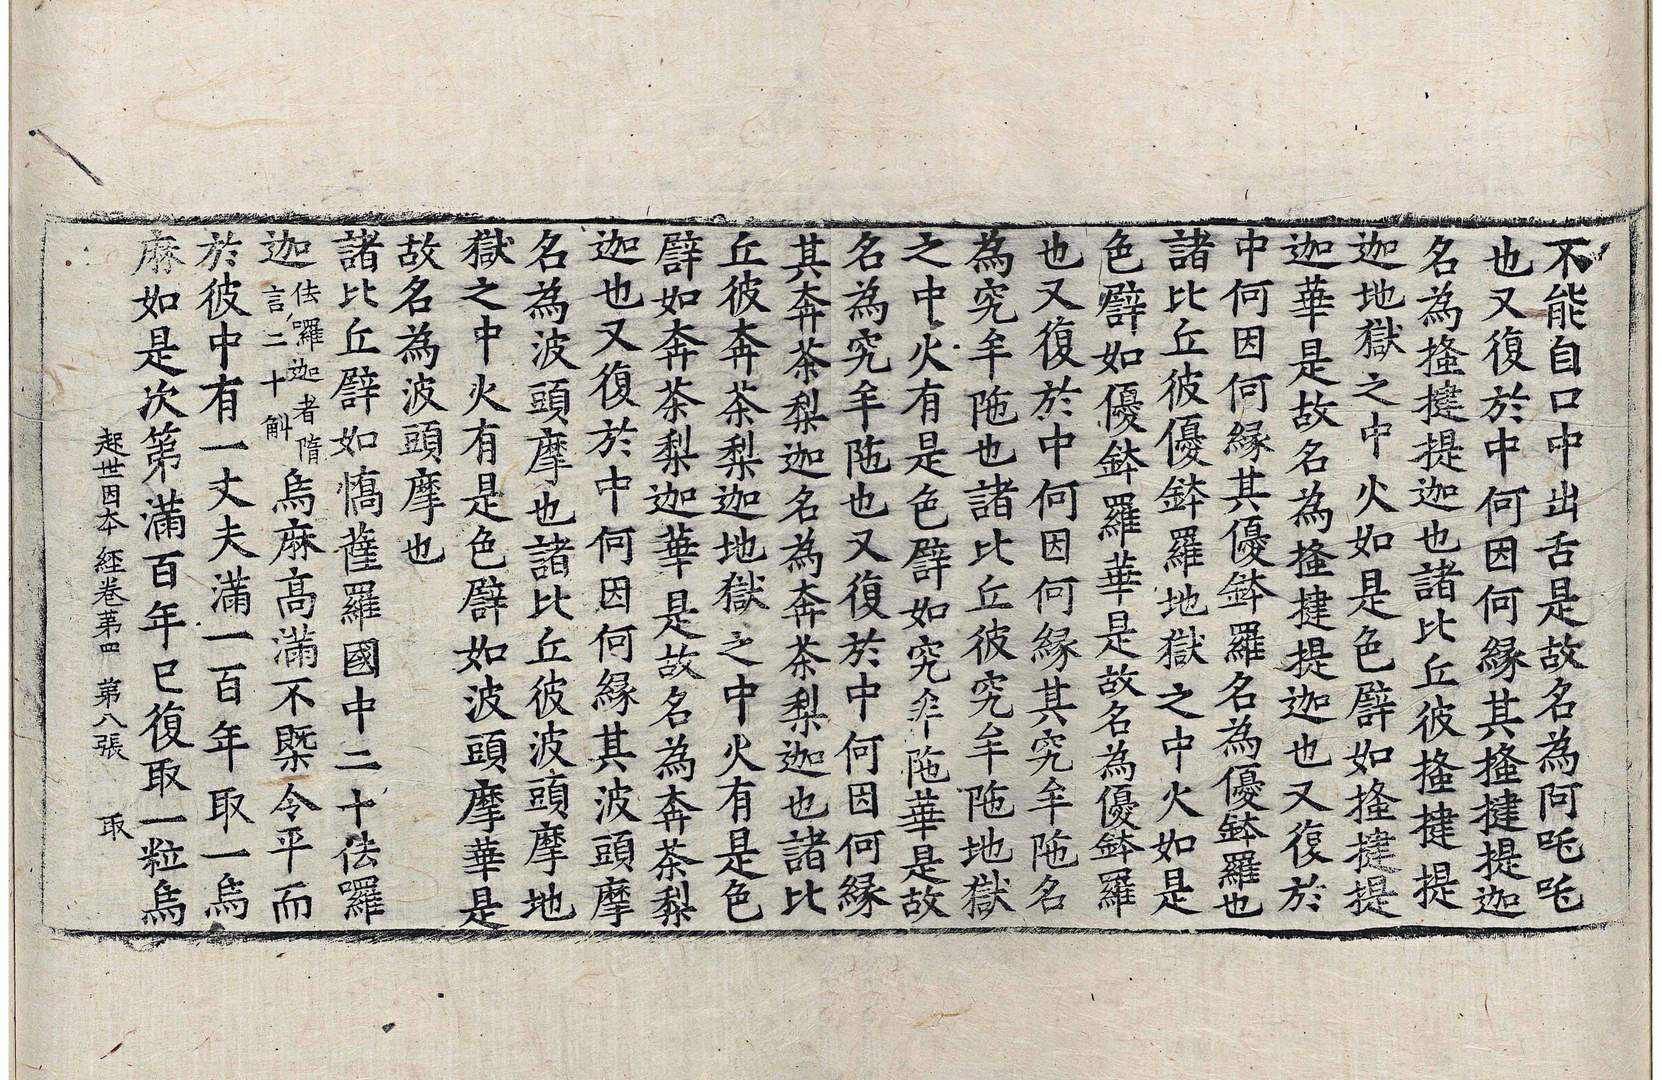 不能自口中出舌是故名為阿吒吒
也又復於中何因何縁其搔揵提迦
名為搔揵提迦也諸比丘彼搔揵提
迦地獄之中火如是色譬如搔揵提
迦華是故名為搔揵提迦也又復於
中何因何縁其優鉢羅名為優鉢羅也
諸比丘彼優鉢羅地獄之中火如是
色譬如優鉢羅華是故名為優鉢羅
也又復於中何因何縁其究牟陁名
為究牟陁也諸比丘彼究牟陁地獄
之中火有是色譬如究牟陁華是故
名為究牟陁也又復於中何因何縁
其奔茶梨迦名為奔茶梨迦也諸比
丘彼奔茶梨迦地獄之中火有是色
譬如奔茶梨迦華是故名為奔茶梨
迦也又復於中何因何縁其波頭摩
名為波頭摩也諸比丘彼波頭摩地
獄之中火有是色譬如波頭摩華是
故名為波頭摩也
諸比丘譬如憍薩羅國中二十佉囉
迦佉囉迦者隋言二十斛烏麻高滿不槩令平而
於彼中有一丈夫滿一百年取一烏
麻如是次第滿百年已復取一粒烏
起世因本經卷第四 第八張 取